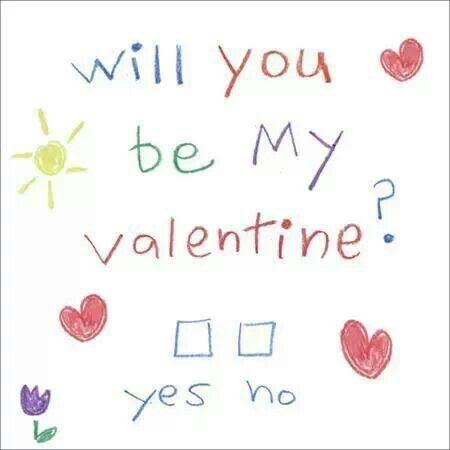 will you
be My
valentine?
yes no